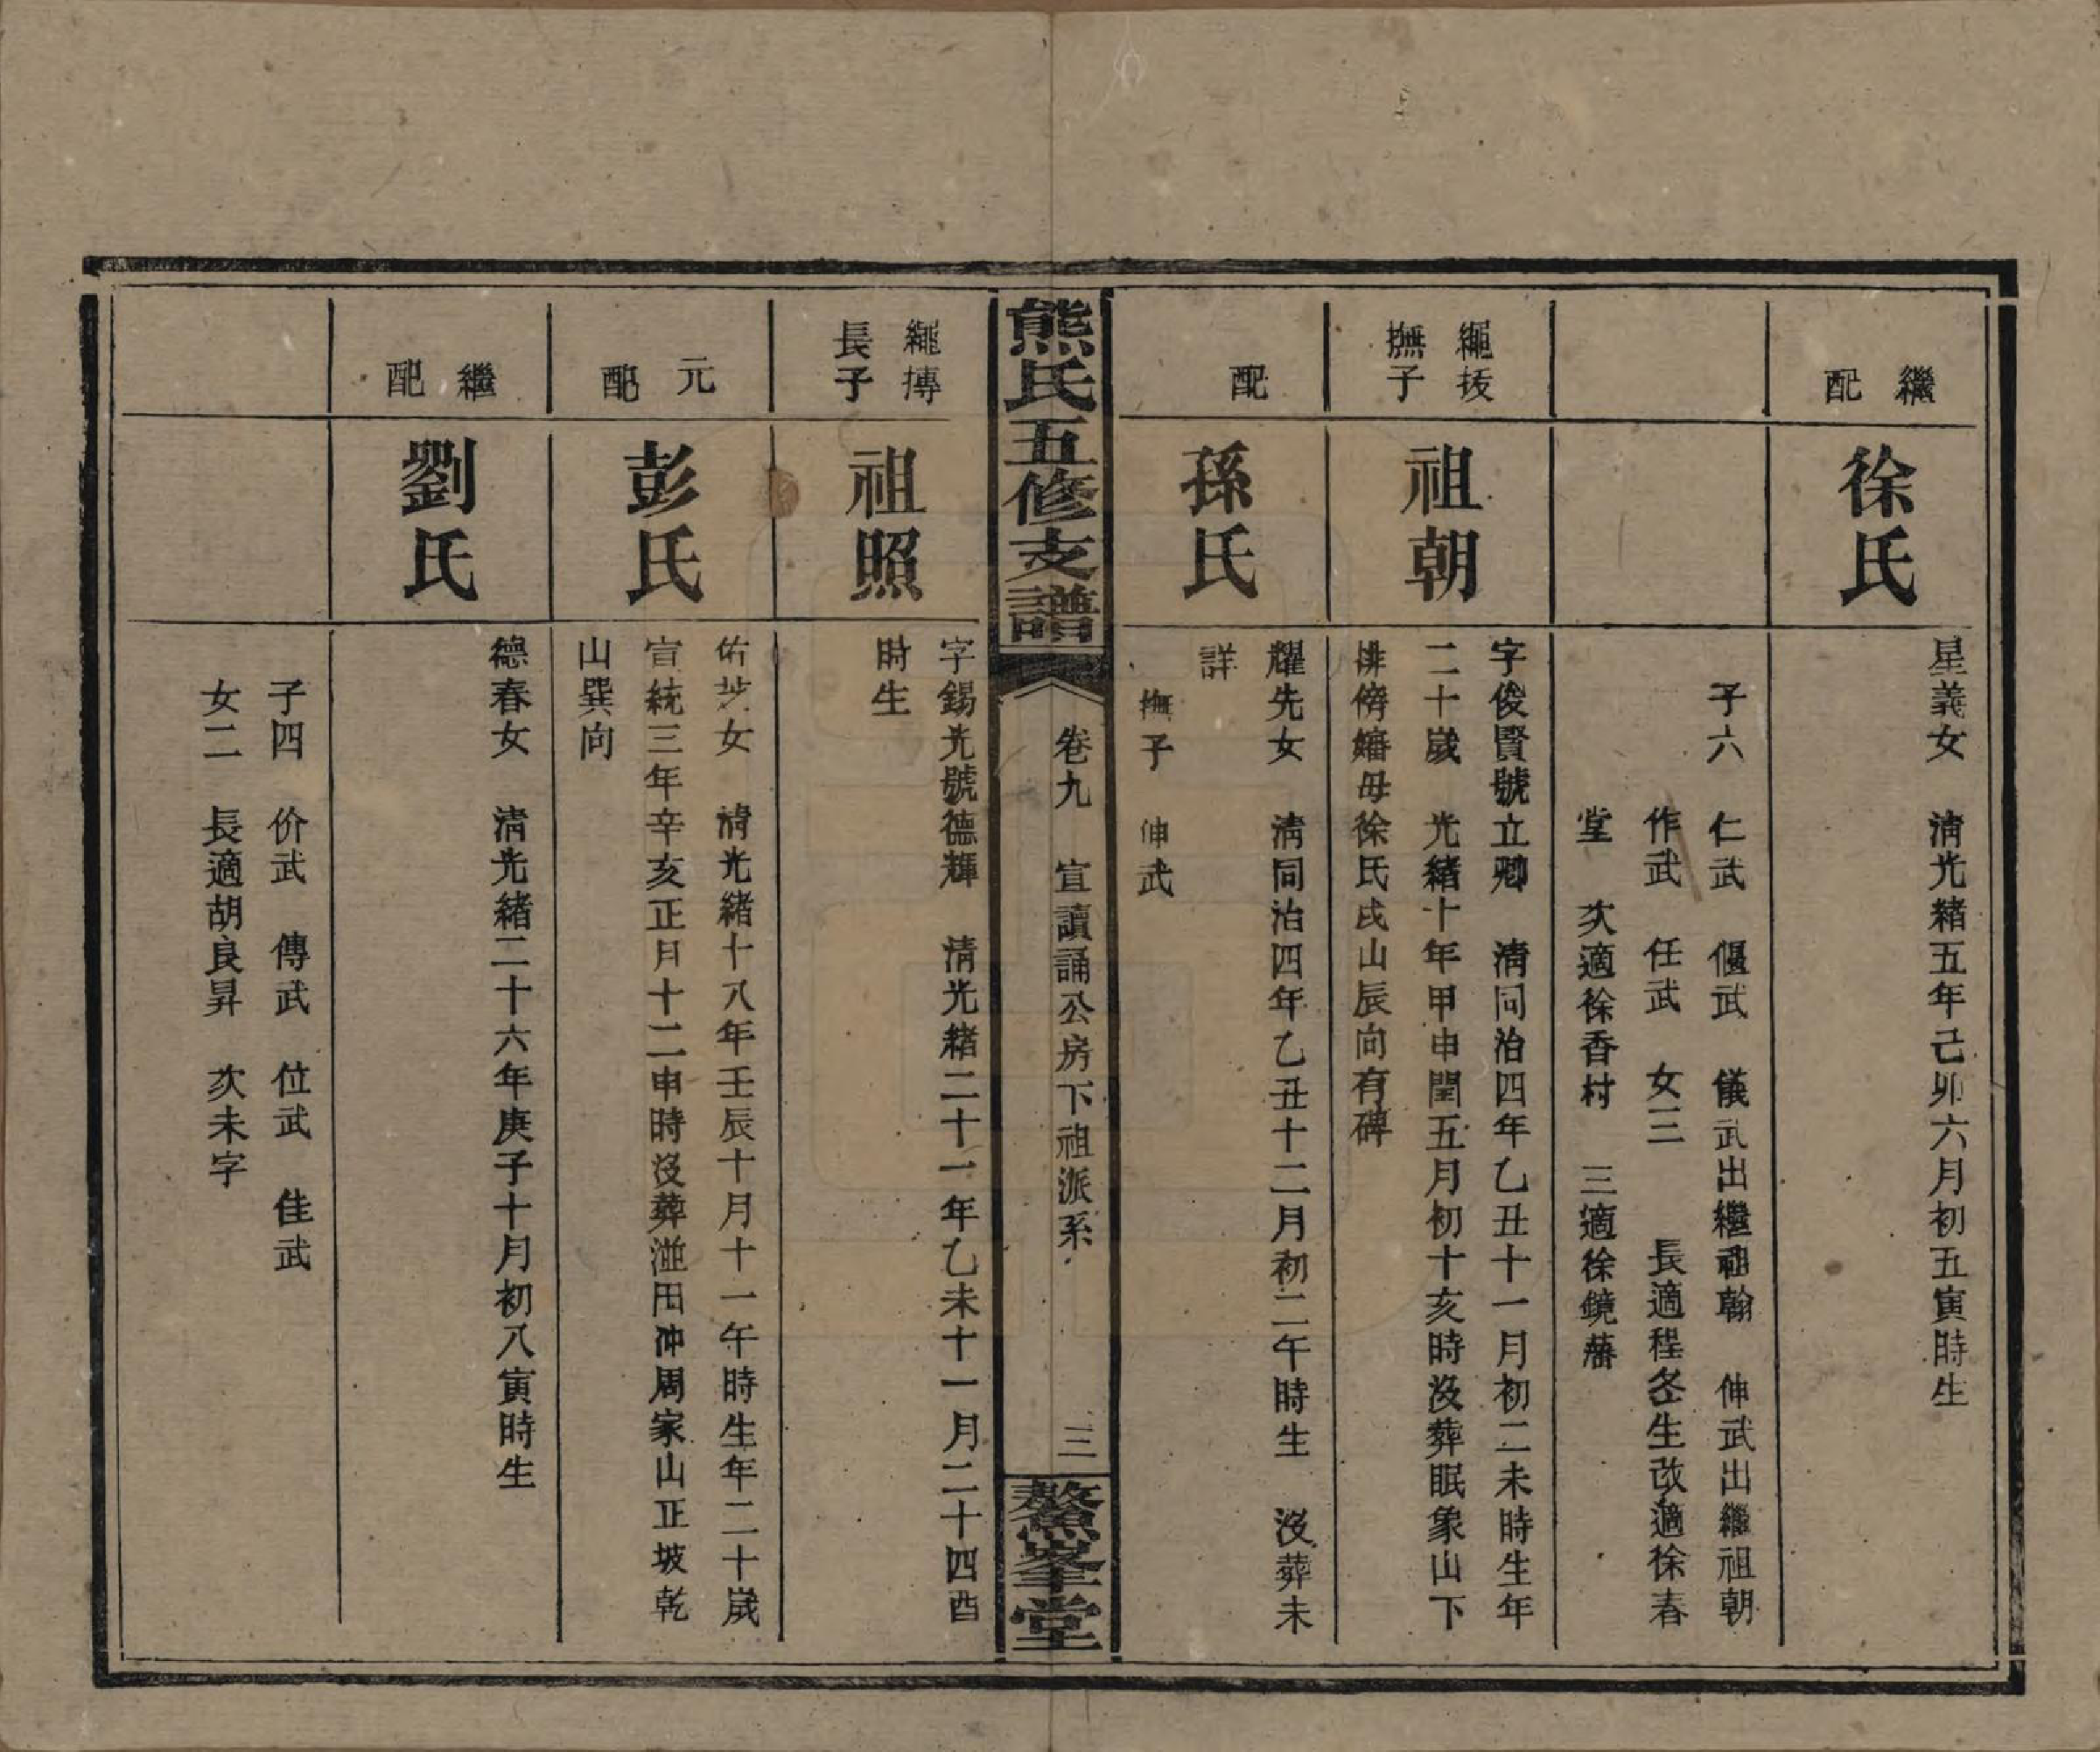 繼
配
徐氏
星義女　清光緒五年己卯六月初五寅時生
子六　仁武　偃武　儀武出繼祖翰　伸武出繼祖朝
作武　任武　女三　　長適程冬生改適徐春
堂　次適徐香村　三適徐鏡藩
繩拔
撫子
祖朝
字俊賢號立卿　清同治四年乙丑十一月初二未時生年
二十歲　光緒十年甲申閏五月初十亥時沒葬眠象山下
排傍嬸母徐氏戌山辰向有碑
配
孫氏
耀先女　清同治四年乙丑十二月初二午時生　沒葬未
詳
撫子　伸武
熊氏五修支譜
卷九　宣讀誦公房下祖派系
三
鰲峯堂
繩摶
長子
祖照
字錫光號德輝　清光緒二十一年乙未十一月二十四酉
時生
元
配
彭氏
佑芝女　清光緒十八年壬辰十月十一午時生年二十歲
宣統三年辛亥正月十二申時沒葬湴田沖周家山正坡乾
山巽向
繼
配
劉氏
德春女　清光緒二十六年庚子十月初八寅時生
子四　价武　傳武　位武　佳武
女二　長適胡良昇　次未字